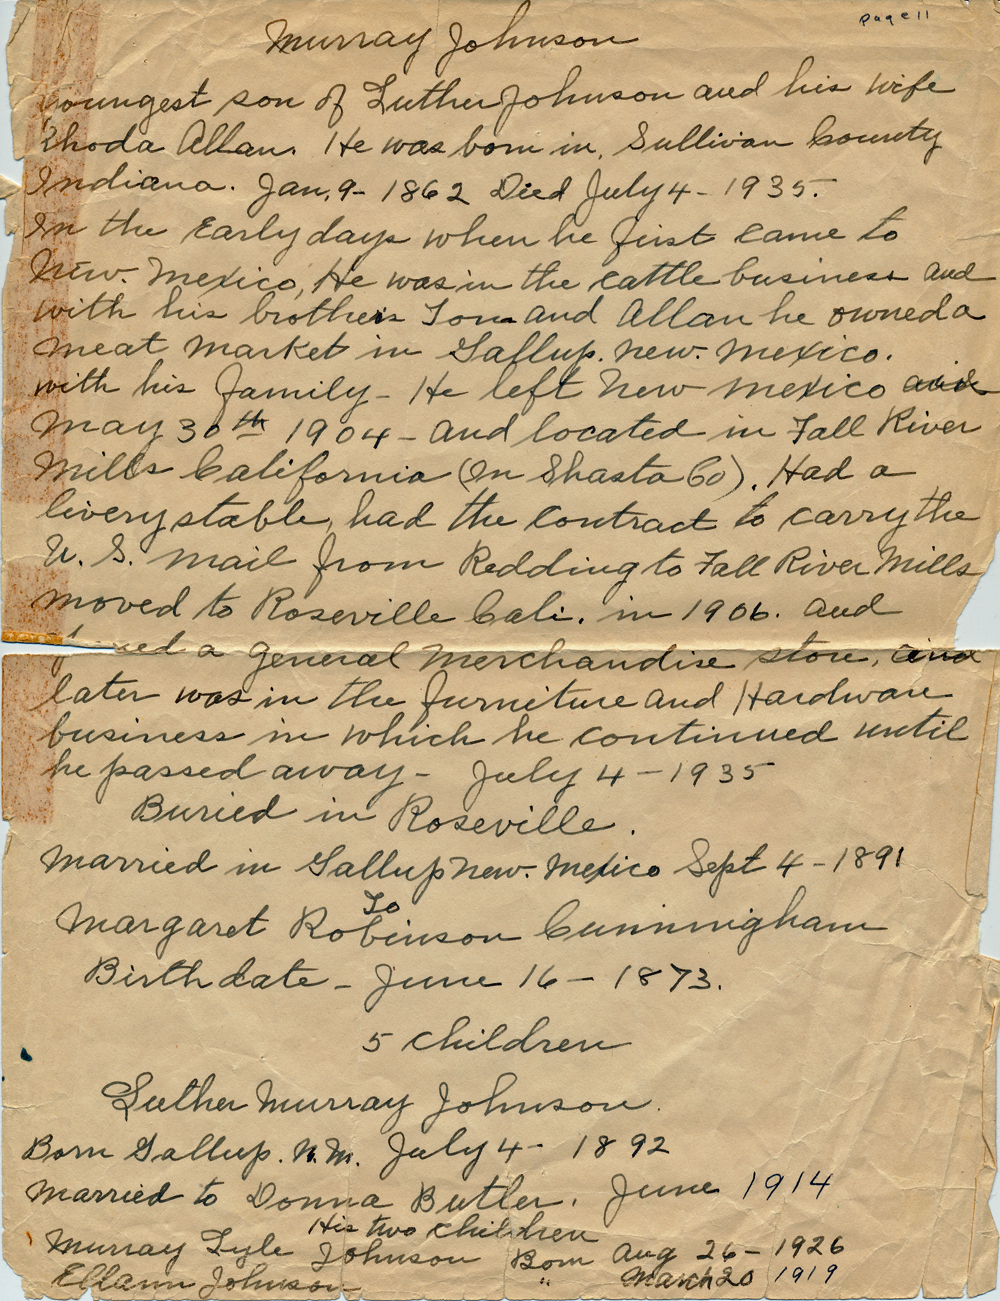 page 11
Murray Johnson
Youngest son of Luther Johnson and his wife
Rhoda Allan. He was born in, Sullivan County
Indiana. Jan, 9- 1862 Died July 4 - 1935.
In the Early days when he first came to
New. Mexico, He was in the cattle business and
with his brothers Tom and Allan he owned a
meat market in Gallup. New. Mexico.
with his family - He left New Mexico and
May 30th 1904 - and located in Fall River
Mills California (In Shasta Co). Had a
livery stable, had the contract to carry the
U. S. Mail from Redding to Fall River Mills
moved to Roseville Cali. in 1906. and
a General Merchandise store, and
later was in the furniture and Hardware
business in which he continued until
he passed away - July 4 - 1935
Buried in Roseville.
Married in Gallup New. Mexico Sept 4 - 1891
To
Margaret Robinson Cunningham
Birth date - June 16 - 1873.
5 children
Luther Murray Johnson.
Born Gallup. N.M. July 4 - 1892
Married to Donna Butler. June 1914
His two children
Murray Lyle Johnson Born Aug 26 - 1926
Ellann Johnson " March 20 1919